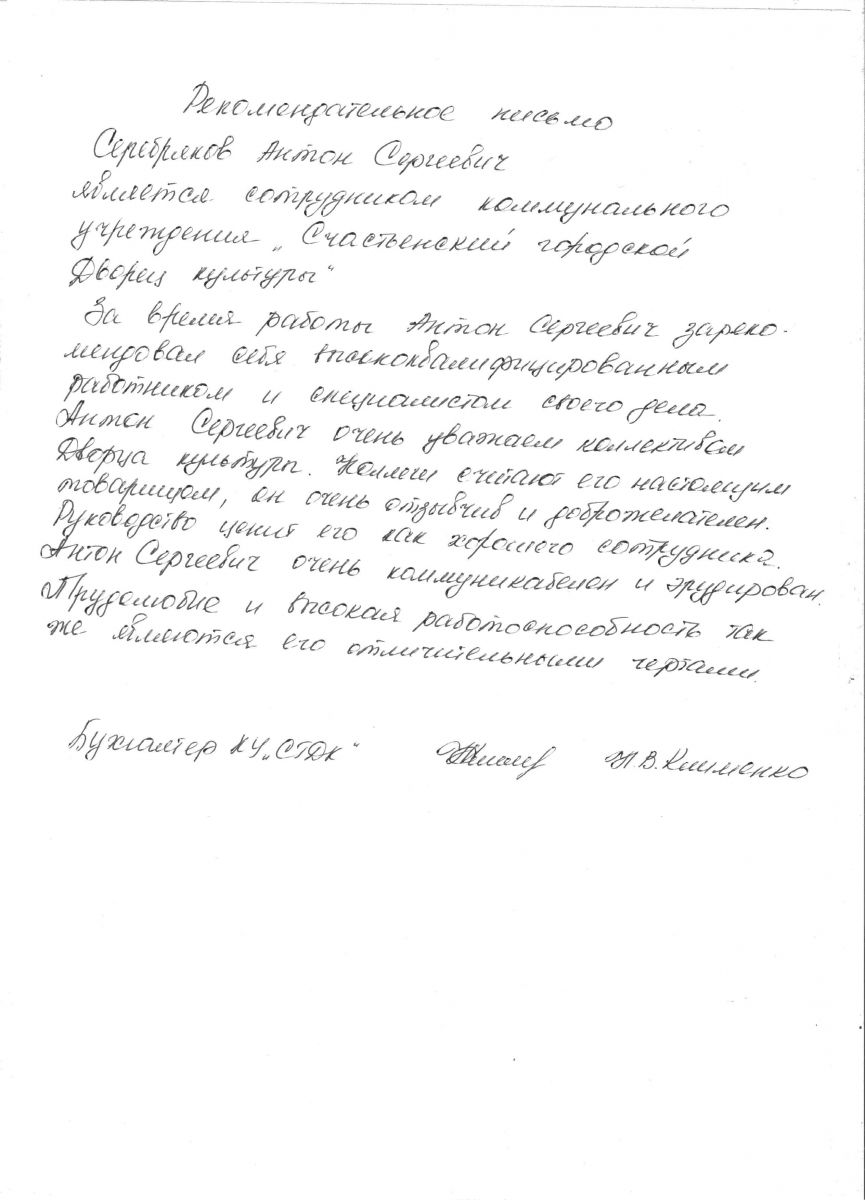 Рекомендательное письмо
Серебряков Антон Сергеевич
является сотрудником коммунального
учреждения „Счастьенский городской
Дворец культуры"
За время работы Антон Сергеевич зареко-
мендовал себя высококвалифицированным
работником и специалистом своего дела.
Антон Сергеевич очень уважаем коллективом
Дворца культуры. Коллеги считают его настоящим
товарищом, он очень отзывчив и доброжелателен.
Руководство ценит его как хорошего сотрудника.
Антон Сергеевич очень коммуникабелен и эрудирован.
Трудолюбие и высокая работоспособность так
же являются его отличительными чертами.
Бухгалтер КУ „СГДК" В. Клименко